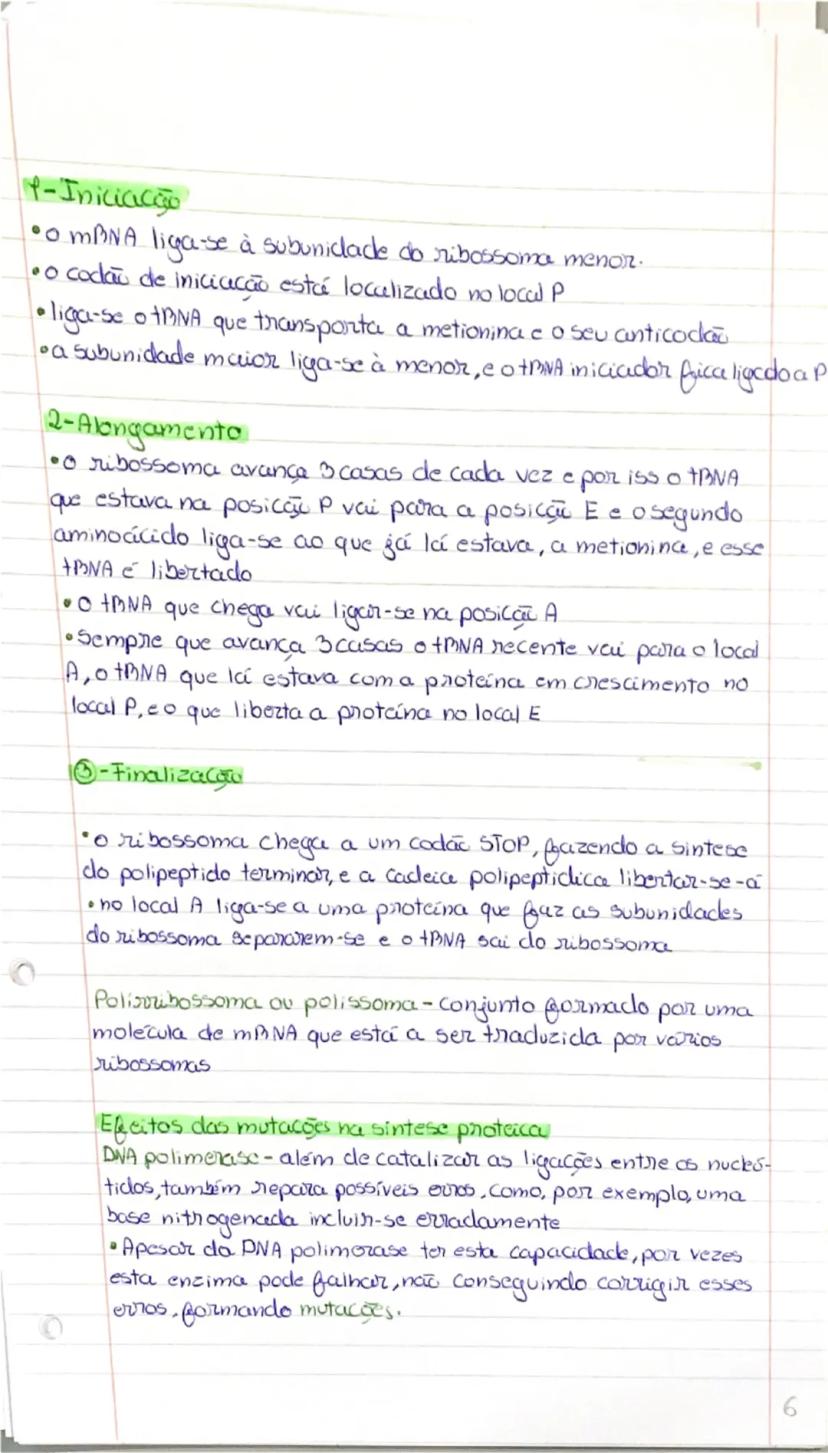 1-Iniciação
•o mRNA liga-se à subunidade do ribossoma menor.
•o codão de iniciação está localizado no local P
•liga-se o tRNA que transporta a metionina e o seu anticodão
•a subunidade maior liga-se à menor, e o tRNA iniciador fica ligado a P
2-Alongamento
•o ribossoma avança 3 casas de cada vez e por isso o tRNA
que estava na posição P vai para a posição E e o segundo
aminoácido liga-se ao que já lá estava, a metionina, e esse
tRNA é libertado
•O tRNA que chega vai ligar-se na posição A
•Sempre que avança 3 casas o tRNA recente vai para o local
A, o tRNA que lá estava com a proteína em crescimento no
local P, e o que liberta a proteína no local E
3-Finalização
•o ribossoma chega a um codão STOP, fazendo a sintese
do polipeptido terminar, e a cadeia polipeptidica libertar-se-á
•no local A liga-se a uma proteína que faz as subunidades
do ribossoma separarem-se e o tRNA sai do ribossoma
Polirribossoma ou polissoma - conjunto formado por uma
molécula de mRNA que está a ser traduzida por vários
ribossomas
Efeitos das mutações na sintese proteica
DNA polimerase - além de catalizar as ligações entre os nucleó-
tidos, também repara possíveis erros, como, por exemplo, uma
base nitrogenada incluir-se erradamente
•Apesar da DNA polimerase ter esta capacidade, por vezes
esta enzima pode falhar, não conseguindo corrigir esses
erros, formando mutações.
6